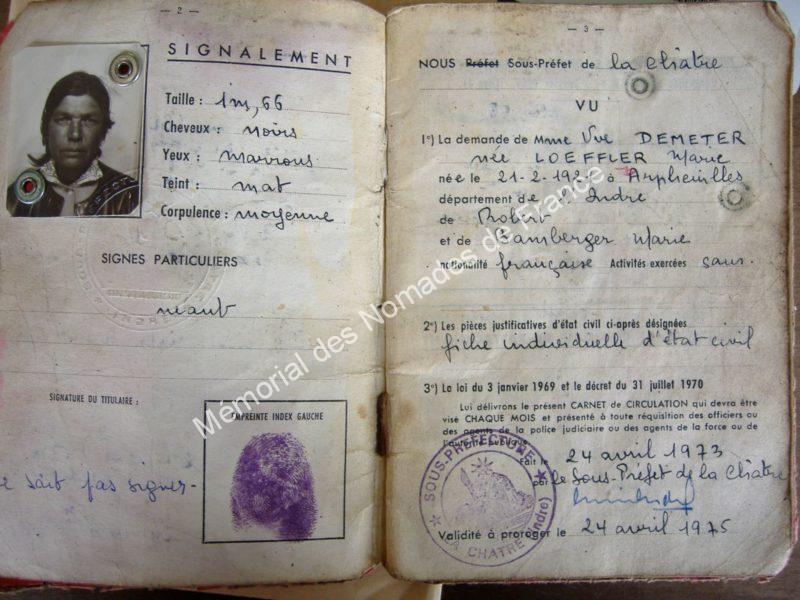 — 2 —
SIGNALEMENT
Taille : 1m,66
Cheveux : noirs
Yeux : marrons
Teint : mat
Corpulence : moyenne
SIGNES PARTICULIERS
néant
SIGNATURE DU TITULAIRE :
EMPREINTE INDEX GAUCHE
sait pas signer
— 3 —
NOUS Préfet Sous-Préfet de la Châtre
VU
1°) La demande de Mme Vve DEMETER
née LOEFFLER Marie
née le 21-2-192 à Arpheuilles
département de l'Indre
de Robert
et de Bamberger Marie
nationalité française Activités exercées sans
2°) Les pièces justificatives d'état civil ci-après désignées
fiche individuelle d'état civil
3°) La loi du 3 janvier 1969 et le décret du 31 juillet 1970
Lui délivrons le présent CARNET de CIRCULATION qui devra être
visé CHAQUE MOIS et présenté à toute réquisition des officiers ou
des agents de police judiciaire ou des agents de la force ou de
l'autorité publique.
Fait le 24 avril 1973
par le Sous-Préfet de la Châtre
Validité à proroger le 24 avril 1975
SOUS-PREFECTURE
LA CHATRE (Indre)
Mémorial des Nomades de France